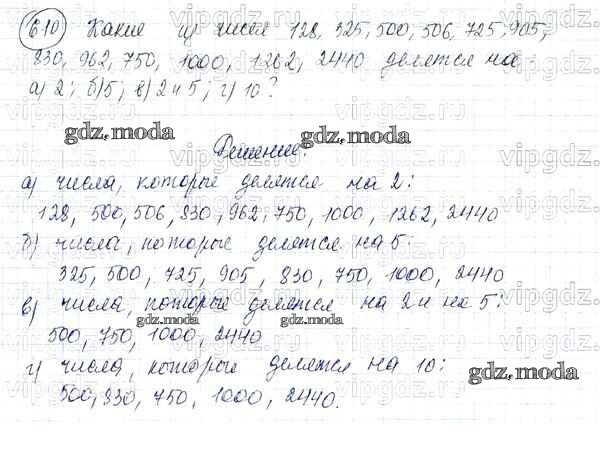 610 Какие из чисел 128, 325, 500, 506, 725, 905,
830, 962, 750, 1000, 1262, 2440 делятся на
а) 2; б) 5; в) 2 и 5; г) 10?
gdz.moda
gdz.moda
Решение:
а) числа, которые делятся на 2:
128, 500, 506, 830, 962, 750, 1000, 1262, 2440
б) числа, которые делятся на 5:
325, 500, 725, 905, 830, 750, 1000, 2440
в) числа, которые делятся на 2 и на 5:
gdz.moda
gdz.moda
500, 750, 1000, 2440
г) числа, которые делятся на 10:
gdz.moda
500, 830, 750, 1000, 2440.